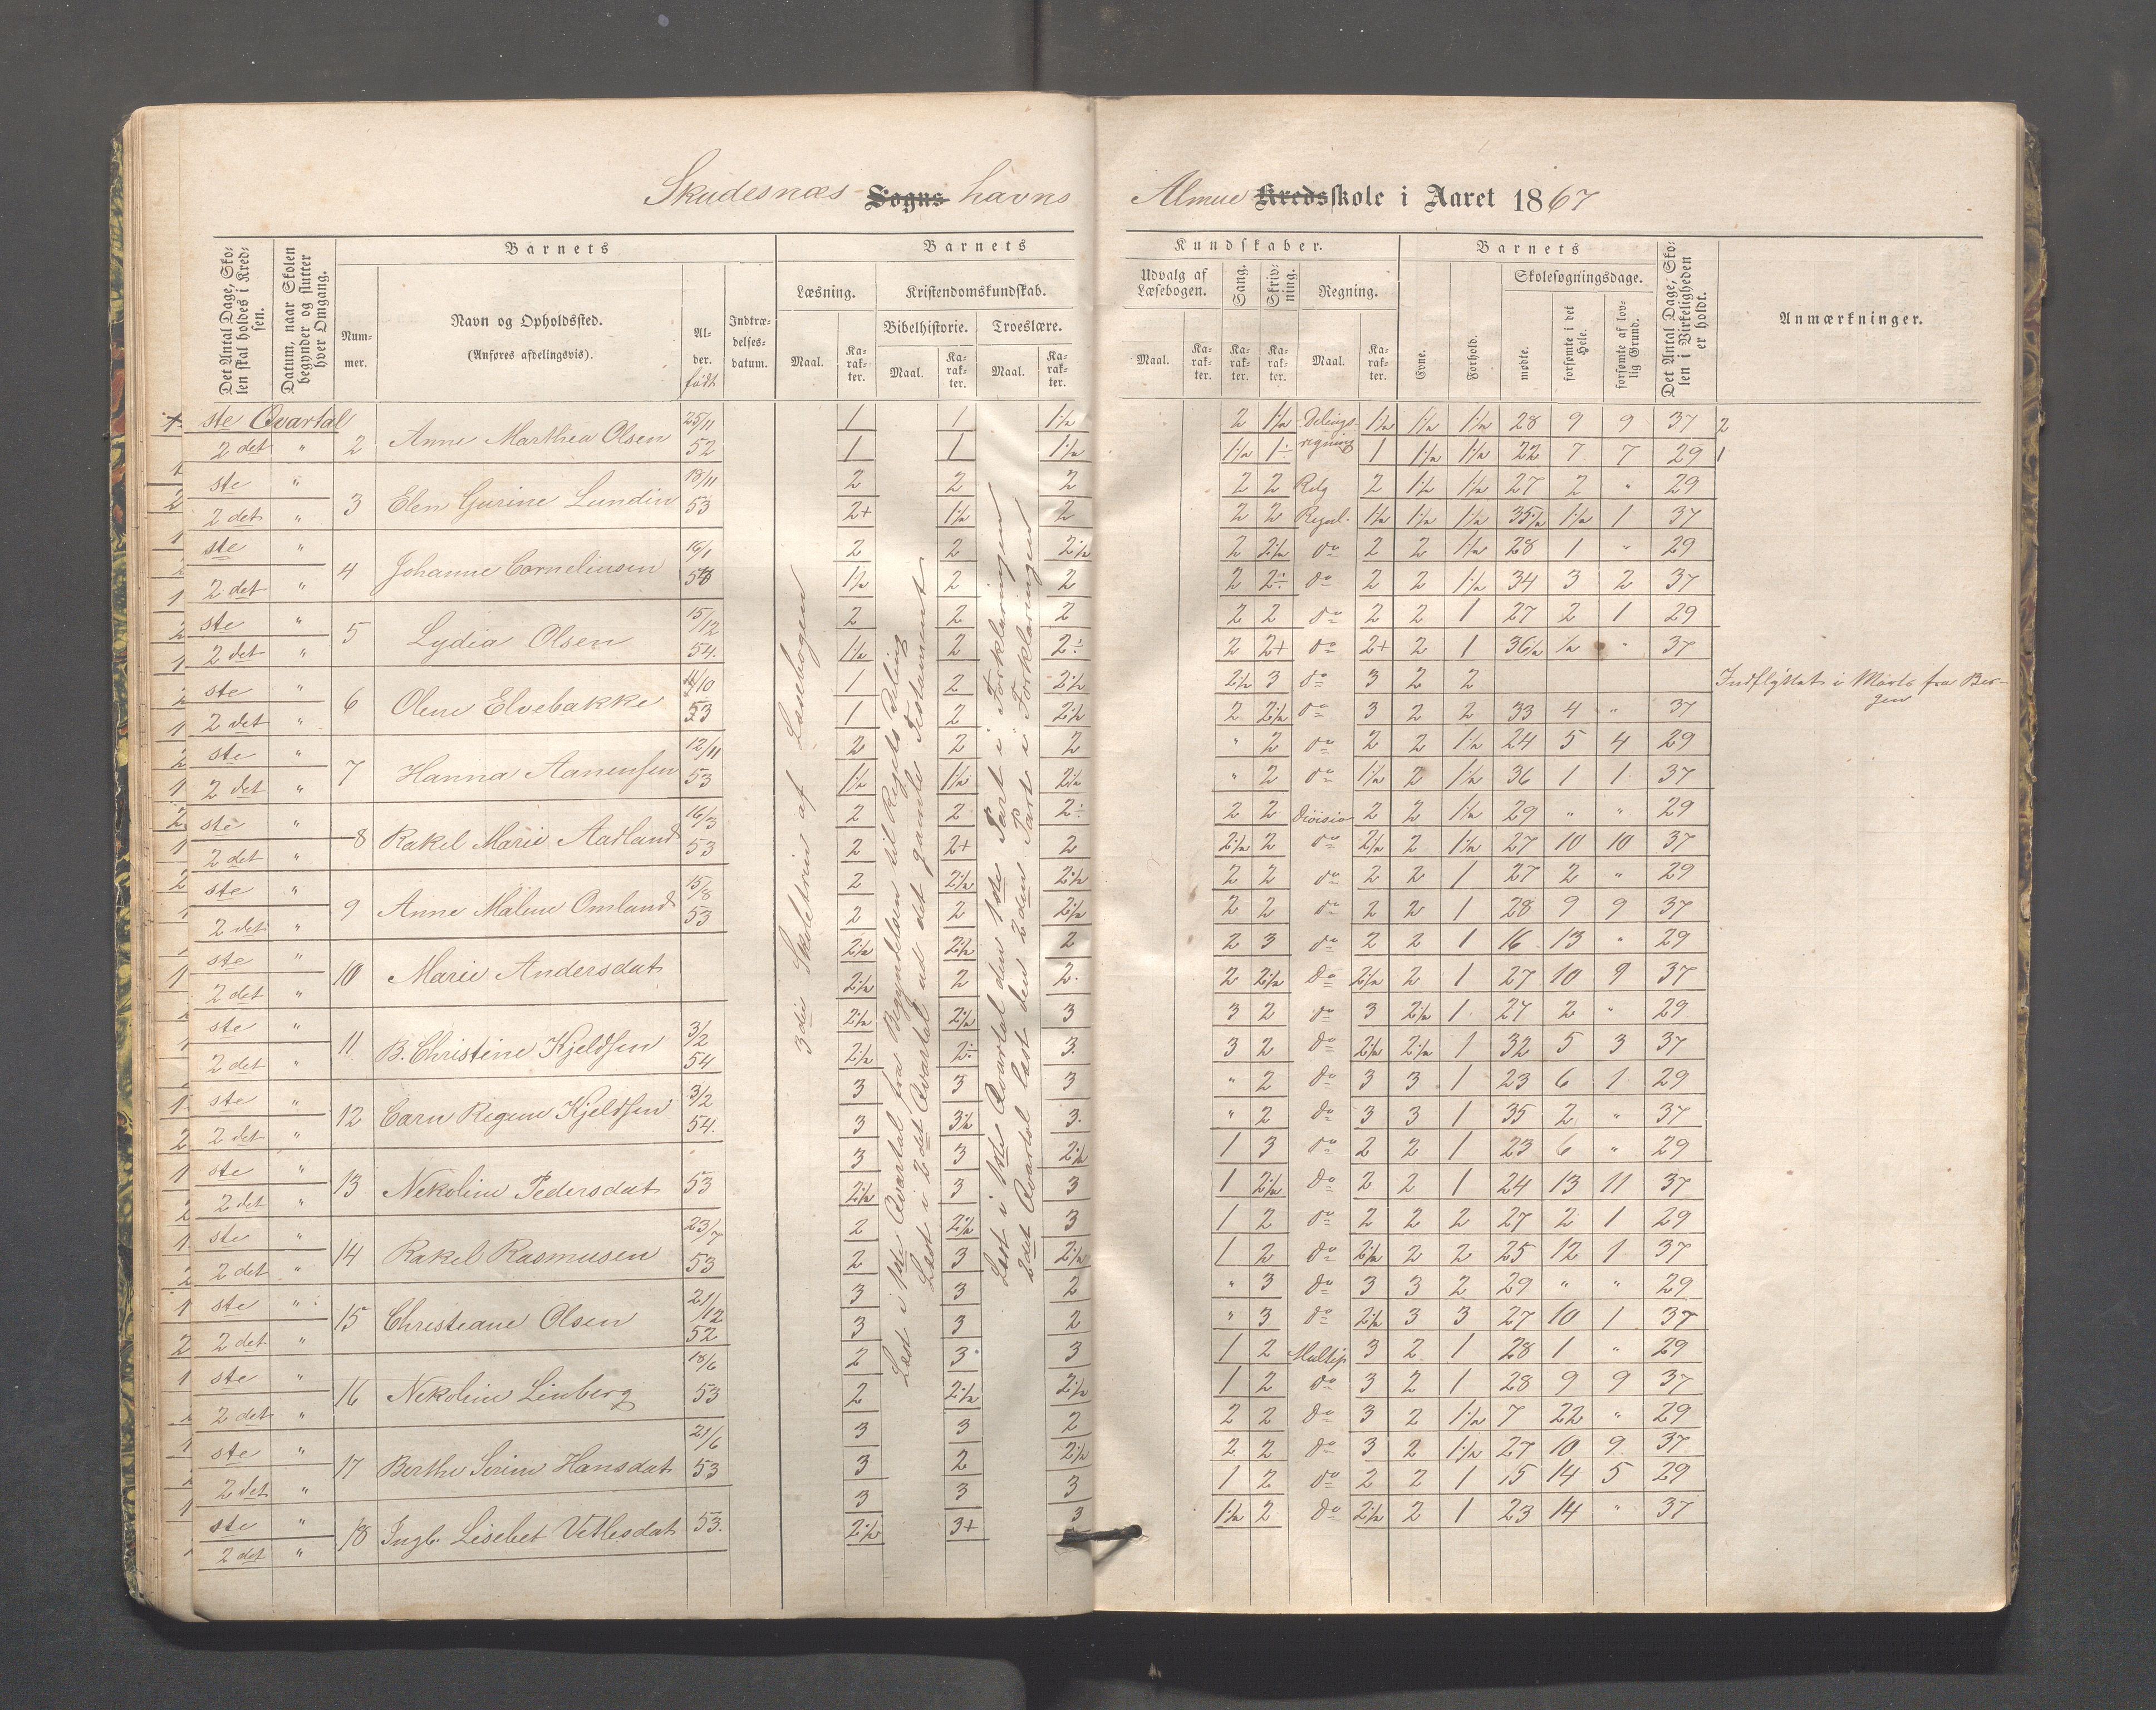 Skudesnæs Sogns havns Almue Kredsskole i Aaret 1867
Det Antal Dage, Skolen skal holdes i Kredsen.
Datum, naar Skolen begynder og slutter hver Omgang.
Barnets
Nummer.
Navn og Opholdssted.
(Anføres afdelingsvis).
Alder. født
Indtrædelsesdatum.
Barnets Kundskaber.
Læsning.
Maal.
Karakter.
Kristendomskundskab.
Bibelhistorie.
Maal.
Karakter.
Troeslære.
Maal.
Karakter.
Udvalg af Læsebogen.
Maal.
Karakter.
Sang.
Karakter.
Skrivning.
Karakter.
Regning.
Maal.
Karakter.
Barnets
Evne.
Forhold.
Skolesøgningsdage.
mødte.
forsømte i det Hele.
forsømte af lovlig Grund.
Det Antal Dage, Skolen i Virkeligheden er holdt.
Anmærkninger.
3die Skoletrin af Læsebogen
Læst i 1ste Qvartal fra Begyndelsen til Rigets Deling
Læst i 2det Qvartal ud det gamle Testament
Læst i 1ste Qvartal den 1ste Part i Forklaringen
2det Qvartal læst den 2den Part i Forklaringen
ste Qvartal 2 Anne Marthea Olsen 25/11 52 1 1 1½ 2 1½ Delings- 1½ 1½ 1½ 28 9 9 37 2
2det " 1 1 1½ 1½ 1÷ regning 1 1½ 1½ 22 7 7 29 1
ste " 3 Elen Gurine Lundin 18/11 53 2 2 2 2 2 2 1½ 1½ 27 2 " 29
2det " 2+ 1½ 2 2 2 1½ 1½ 1½ 35½ 1½ 1 37
ste " 4 Johanne Corneliusen 16/1 2 2 2½ 2 2½ do 2 2 1½ 28 1 " 29
2det " 1½ 2 2 2 2÷ do 2 2 1½ 34 3 2 37
ste " 5 Lydia Olsen 15/12 54. 2 2 2 2 2 do 2 2 1 27 2 1 29
2det " 1½ 2 2÷ 2 2+ do 2+ 2 1 36½ ½ " 37
ste " 6 Olene Elvebakke 53 1 2 2½ 2½ 3 do 3 2 2 Indflyttet i Marts fra Bergen
2det " 1 2 2½ 2 2½ do 3 2 2 33 4 " 37
ste " 7 Hanna Aanensen 12/11 53 2 2 2 " 2 do 2 2 1½ 24 5 4 29
2det " 1½ 1½ 2½ " 2 do 1½ 2 1½ 36 1 1 37
ste " 8 Rakel Marie Aadland 16/3 53 2 2 2÷ 2 2 Division 2 2 1½ 29 " " 29
2det " 2 2+ 2 2½ 2 do 2½ 2 1½ 27 10 10 37
ste " 9 Anne Malene Omland 15/8 53 2 2½ 2½ 2 2 do 2 2 1 27 2 " 29
2det " 2 2 2½ 2 2 do 2 2 1 28 9 9 37
ste " 10 Marie Andersdat 2½ 2½ 2 2 3 do 2 2 1 16 13 " 29
2det " 2½ 2 2. 2 2½ do 2½ 2 1 27 10 9 37
ste " 11 B. Christine Kjeldsen 3/2 54 2½ 2½ 3 3 2 do 3 2½ 1 27 2 " 29
2det " 2½ 2÷ 3. 3 2 do 2½ 2½ 1 32 5 3 37
ste " 12 Carn Regine Kjeldsen 3/2 54. 3 3 3 " 2 do 3 3 1 23 6 1 29
2det " 3 3½ 3. " 2 do 3 3 1 35 2 " 37
ste " 13 Nekoline Pedersdat 53 3 3 2½ 1 3 do 2 2 1 23 6 " 29
2det " 2½ 3 3 1 2½ do 2 2 1 24 13 11 37
ste " 14 Rakel Rasmusen 23/7 53 2 2½ 3 1 2 do 2 2 2 27 2 1 29
2det " 2 3 2½ 1 2 do 2½ 2 2 25 12 1 37
ste " 15 Christiane Olsen 21/12 52 3 3 2 " 3 do 3 3 2 29 " " 29
2det " 3 3 2 " 3 do 2½ 3 3 27 10 1 37
ste " 16 Nekoline Linberg 18/6 53 2 3 3 1 2 Multip 3 2 1 28 1 " 29
2det " 2 2½ 2½ 1 2 do 3 2 1 28 9 9 37
ste " 17 Berthe Serine Hansdat 21/6 53 3 3 2 2 2 do 3 2 1½ 7 22 " 29
2det " 3 2 2½ 2 2 do 3 2 1½ 27 10 9 37
ste " 18 Ingb. Lisebet Vetlesdat 53. 3 3 3 1 2 do 2 2 1 15 14 5 29
2det " 2½ 3+ 3 1½ 2 do 2½ 2 1 23 14 " 37